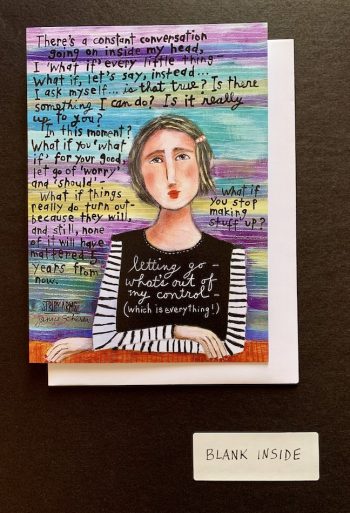 There's a constant conversation
going on inside my head,
I 'what if' every little thing
What if, let's say, instead...
I ask myself... is that true? Is there
something I can do? Is it really
up to you?
In this moment?
What if you 'what
if' for your good,
let go of 'worry'
and 'should' -
What if things
really do turn out-
because they will,
and still, none
of it will have
mattered
years from
now.
What if
you stop
making
stuff up?
letting go -
what's out of
my control -
(which is everything!)
BLANK INSIDE